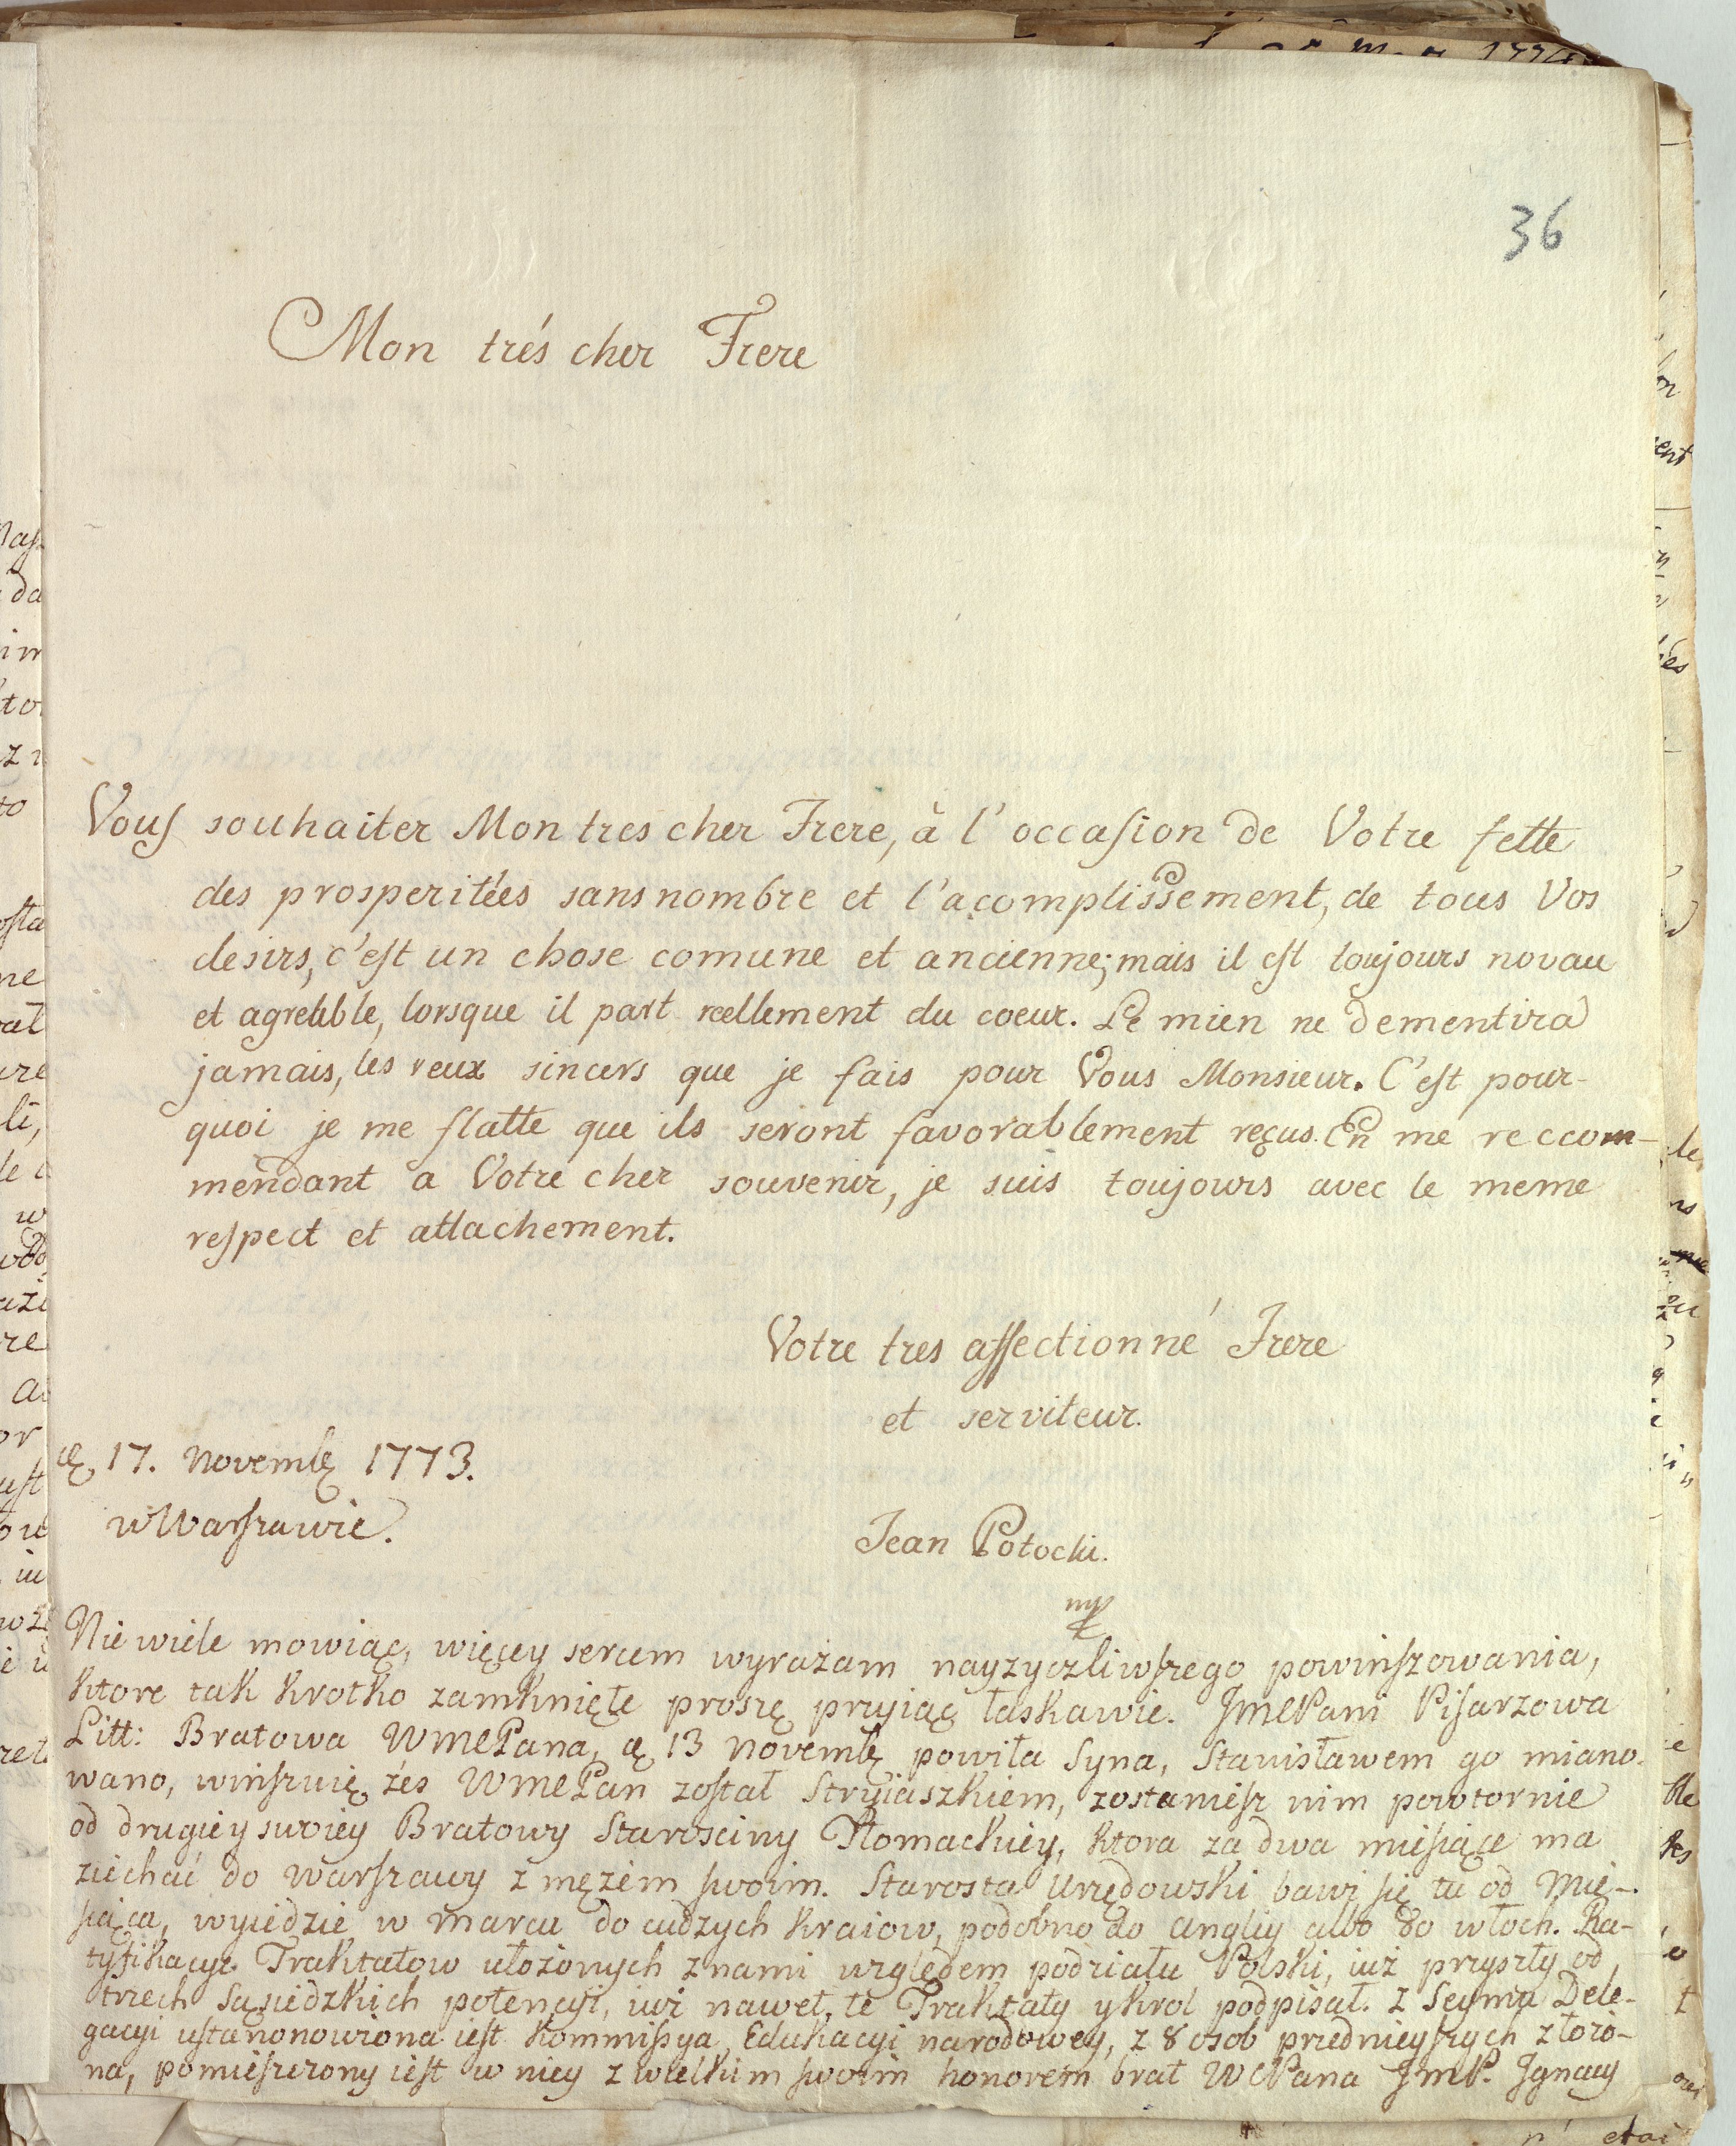 36
Mon trés cher Frere
Vous souhaiter Mon tres cher Frere, à l'occasion de Votre fette
des prosperitées sans nombre et l'acomplissement, de tous Vos
desirs, c'est un chose comune et ancienne; mais il est toujours novau
et agreable, lorsque il part reellement du coeur. Le mien ne dementira
jamais, les veux sincers que je fais pour Vous Monsieur. C'est pour-
quoi je me flatte que ils seront favorablement reçus. En me reccom-
mendant a Votre cher souvenir, je suis toujours avec le meme
respect et attachement.
Votre tres affectionné Frere
et serviteur.
17. Novembę 1773.
w Warszawie.
Jean Potocki.
mp
Nie wiele mowiąc, więcey sercem wyrażam nayzyczliwszego powinszowania,
ktore tak krotko zamknięte proszę przyiąc łaskawie. JmePani Pisarzowa
Litt: Bratowa WMePana, 13 Novembę powiła Syna, Stanisławem go miano-
wano, winszuię żes WMePan został Stryiaszkiem, zostaniesz nim powtornie
od drugiey swoiey Bratowy Starosciny Tłomackiey, ktora za dwa miesiące ma
ziechać do Warszawy z mężem swoim. Starosta Urzędowski bawi się tu od Mie-
siąca, wyiedzie w Marcu do cudzych kraiow, podobno do Angliy albo do włoch. Ra-
tyfikacye Traktatow ułożonych z nami względem podziału Polski, iuż przyszły od
trzech Sąsiedzkich potencyi, iuż nawet, te Traktaty y krol podpisał. z Seymu Dele-
gacyi ustanonowiona iest Kommissya Edukacyi narodowey, z 8 osob przednieyszych złożo-
na, pomieszczony iest w niey z wielkim swoim honorem brat WCPana JmP. Jgnacy